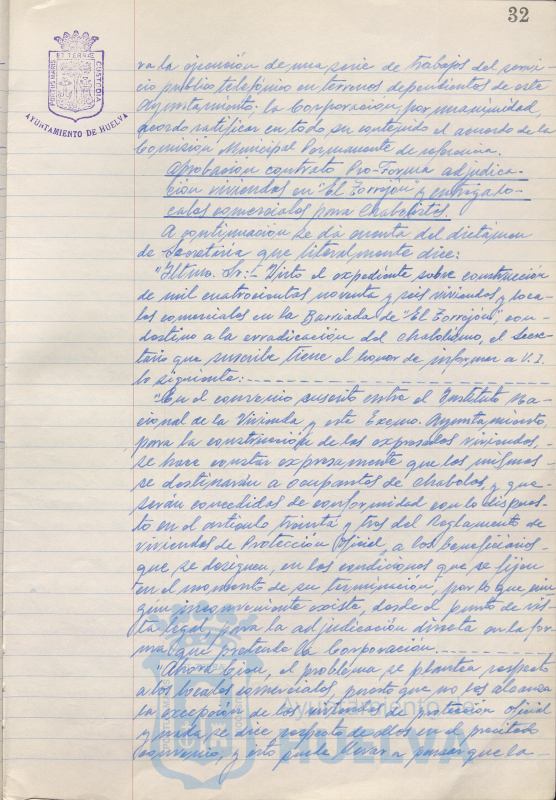 32
PORTUS MARIS ET TERRAE CUSTODIA
AYUNTAMIENTO DE HUELVA
ra la ejecución de una serie de trabajos del servi-
cio público telefónico en terrenos dependientes de este
Ayuntamiento; la Corporación, por unanimidad,
acordó ratificar en todo su contenido el acuerdo de la
Comisión Municipal Permanente de referencia.
Aprobación contrato Pro-Forma adjudica-
ción viviendas en "El Torrejón" y entrega lo-
cales comerciales para Chabolistas.
A continuación se dá cuenta del dictámen
de Secretaría que literalmente dice:
"Iltmo. Sr.:- Visto el expediente sobre construcción
de mil cuatrocientas noventa y seis viviendas y loca-
les comerciales en la Barriada de "El Torrejón", con
destino a la erradicación del chabolismo, el Secre-
tario que suscribe tiene el honor de informar a V.I.
lo siguiente:
"En el convenio suscrito entre el Instituto Na-
cional de la Vivienda y este Excmo. Ayuntamiento,
para la construcción de las expresadas viviendas,
se hace constar expresamente que las mismas
se destinarán a ocupantes de chabolas y que
serán concedidas de conformidad con lo dispues-
to en el artículo treinta y tres del Reglamento de
viviendas de Protección Oficial, a los beneficiarios
que se designen, en las condiciones que se fijen
en el momento de su terminación, por lo que nin-
gun inconveniente existe, desde el punto de vis-
ta legal, para la adjudicación directa en la for-
ma que pretende la Corporación.
"Ahora bien, el problema se plantea respecto
a los locales comerciales, puesto que no les alcanza
la excepción de las viviendas de protección oficial
y nada se dice respecto de ellos en el precitado
Convenio, y ésto puede llevar a pensar que la-
Ayuntamiento de
HUELVA